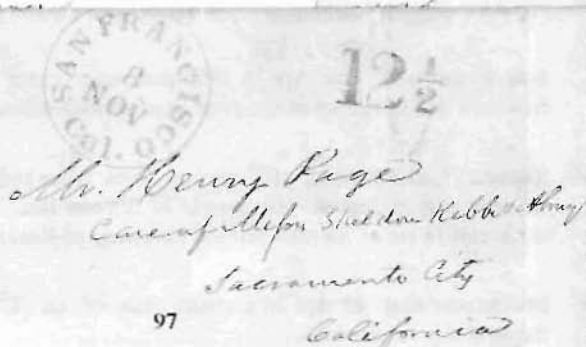 SAN FRANCISCO Cal.
8
NOV
12 1/2
Mr. Henry Page
Care of Sheldon Kibbe &
Sacramento City
California
97